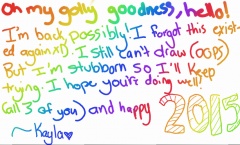 Oh my golly goodness, hello!
I'm back, possibly! I forgot this exist-
ed again xD I still can't draw (OOPS)
But I'm stubborn so I'll keep
trying. I hope you're doing well!
(all 3 of you) and happy
2015
~Kayla♥